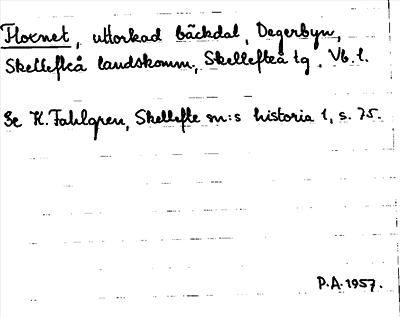 Floxnet, uttorkad bäckdal, Degerbyn,
Skellefteå landskomm., Skellefteå tg. Vb. l.
Se K. Fahlgren, Skellefte sn:s historia 1, s. 75.
P.A. 1957.